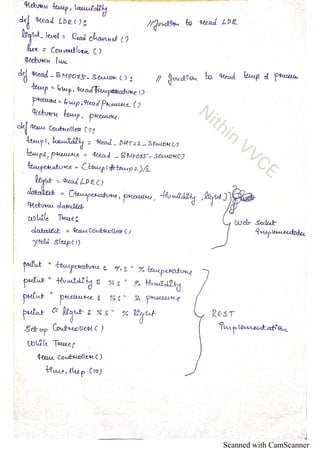 Return temp, humidity
def read LDR(): //function to read LDR
light_level = Read channel ()
lux = ConvertLux ()
Return lux
def read_BMP085_Sensor(): // function to read temp & pressure
temp = bmp.readTemperature()
pressure = bmp.readPressure()
Return temp, pressure.
def run Controller():
temp1, humidity = read_DHT22_Sensor()
temp2, pressure = read_BMP085_Sensor()
temperature = (temp1+temp2)/2
light = read LDR()
datalist = [temperature, pressure, humidity, light]
Return datalist
while True:
datalist = runController()
yield sleep(1)
Web Socket
Implementation
print " temperature : %s " % temperature
print " Humidity : %s " % Humidity
print " pressure : %s " % pressure
print " light : %s " % light
Setup Controller()
while True:
run Controller()
time.sleep(10)
REST
Implementation
Nithin VVCE
Scanned with CamScanner